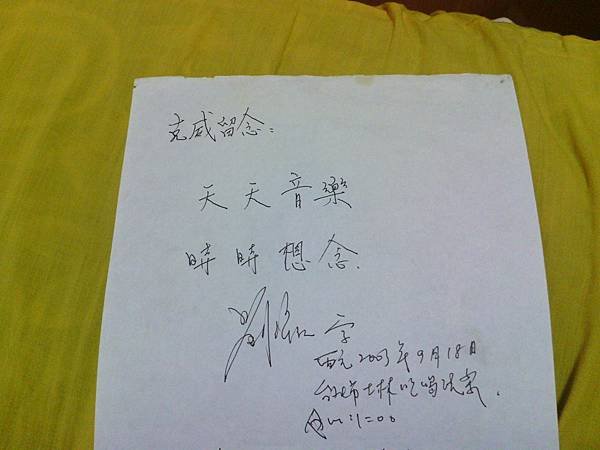 克威留念：
天天音樂
時時想念.
劉 字
西元2003年9月18日
台北市士林吃喝玩樂.